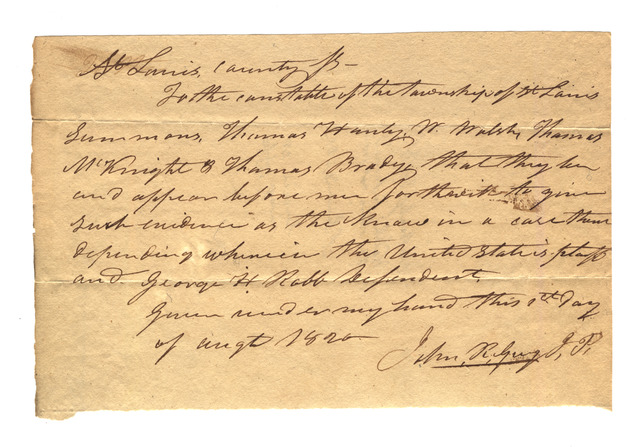 St Louis, County ss —
To the constable of the township of St Louis
Summons, Thomas Hanly, W. Walsh, Thomas
McKnight & Thomas Brady, that they be
and appear before me forthwith to give
such evidence as the know in a case then
depending wherein the United States is plaff
and George H Robb Defendent,
Given under my hand this 1st day
of augt 1820
John R. Guy J. P.